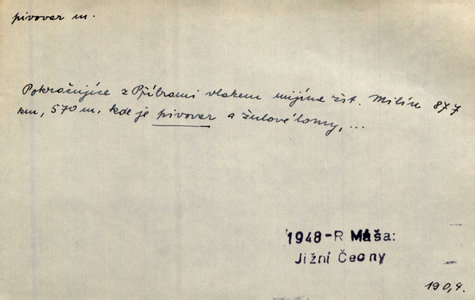 pivovar m.
Pokračujíce z Příbrami vlakem mijíme žst. Milín 87,7
km, 570 m. kde je pivovar a žulové lomy, ...
1948-R Máša:
Jižní Čechy
190,9.